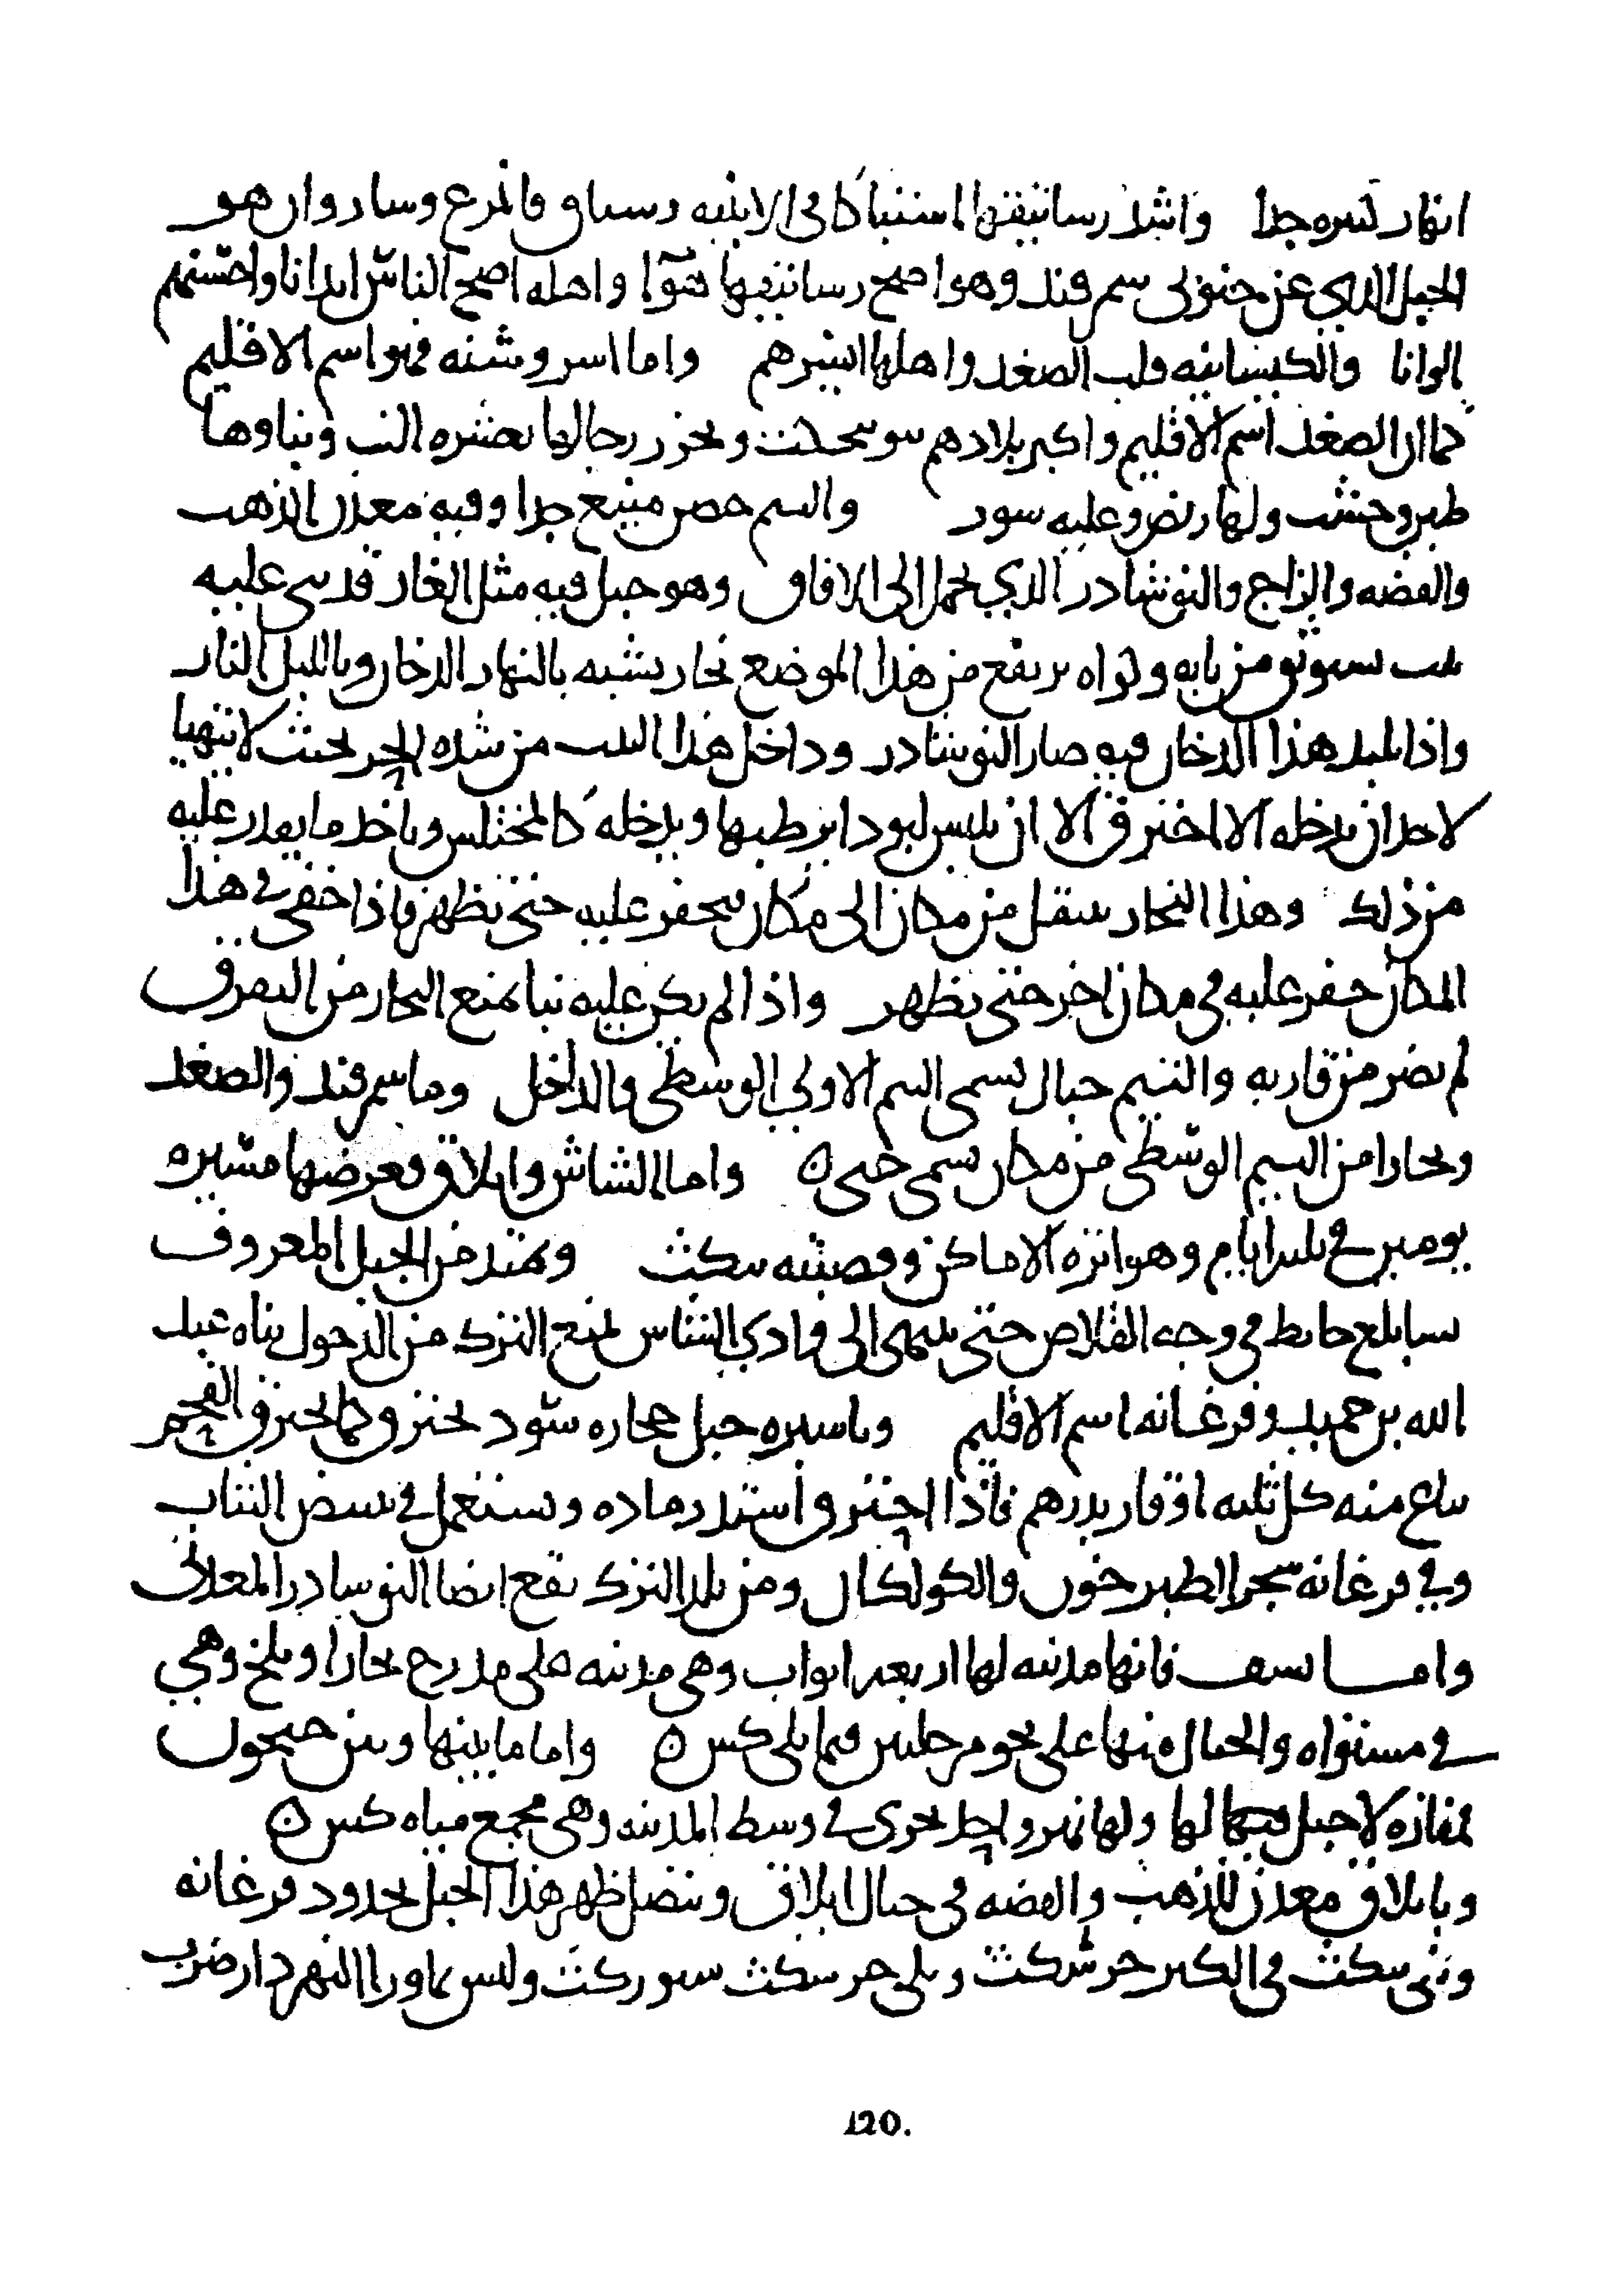 انهار كثيره جدا واشد رساتيقها اشتباكا في الابنيه رستاق فانمرع وساروان هو
الجبل الذي عن جنوبي سمرقند وهو اصح رساتيقها هوا واهله اصح الناس ابدانا واحسنهم
الوانا والكشانيه قلب الصغد واهلها ايسرهم واما اسروشنه فهو اسم الاقليم
كما ان الصغد اسم الاقليم واكبر بلادهم بومجكث ويحزر رجالها بعشره الف وبناوها
طين وخشب ولها ربض وعليه سور والبتم حصن منيع جدا وفيه معدن الذهب
والفضه والزاج والنوشادر الذي يحمل الى الافاق وهو جبل فيه مثل الغار قد بني عليه
بيت يستوثق من بابه وكواه يرتفع من هذا الموضع بخار يشبه بالنهار الدخان وبالليل النار
واذا تلبد هذا الدخان فيه صار النوشادر وداخل هذا البيت من شده الحر بحيث لا يتهيا
لاحد ان يدخله الا احترق الا ان يلبس لبودا يرطبها ويدخله كالمختلس وياخذ ما يقدر عليه
من ذلك وهذا البخار ينتقل من مكان الى مكان فيحفر عليه حتى يظهر فاذا خفي في هذا
المكان حفر عليه في مكان اخر حتى يظهر واذا لم يكن عليه بنا يمنع البخار من التفرق
لم يضر من قاربه والبتم جبال تسمى البتم الاولى والوسطى والداخل وما سمرقند والصغد
وبخارا من البتم الوسطى من مكان يسمى جي ه واما الشاش وايلاق فعرضها مسيره
يومين في ثلثه ايام وهو انزه الاماكن وقصبته بنكث ويمتد من الجبل المعروف
بسابلغ حايط في وجه القلاص حتى ينتهي الى وادي الشاش لمنع الترك من الدخول بناه عبد
الله بن حميد وفرغانه اسم الاقليم وباسبره جبل حجاره سود تحترق كما يحترق الفحم
يباع منه كل ثلثه اوقار بدرهم فاذا احترق اشتد رماده ويستعمل في تبييض الثياب
وفي فرغانه شجر الطبرخون والكولكان ومن بلد الترك يقع ايضا النوشادر المعدني
واما نسف فانها مدينه لها اربعه ابواب وهي مدينه على مدرج بخارا وبلخ وهي
في مستواه والجبال منها على نحو مرحلتين فيما يلي كس ه واما ما بينها وبين جيحون
فمفازه لا جبل فيها لها ولها نهر واحد يجري في وسط المدينه وهي مجمع مياه كس ه
وبايلاق معدن للذهب والفضه في جبال ايلاق ويتصل ظهر هذا الجبل بحدود فرغانه
وتلي بنكث في الكبر خرشكث ويلي خرشكث شتوركث وليس بماورا النهر دار ضرب
120.